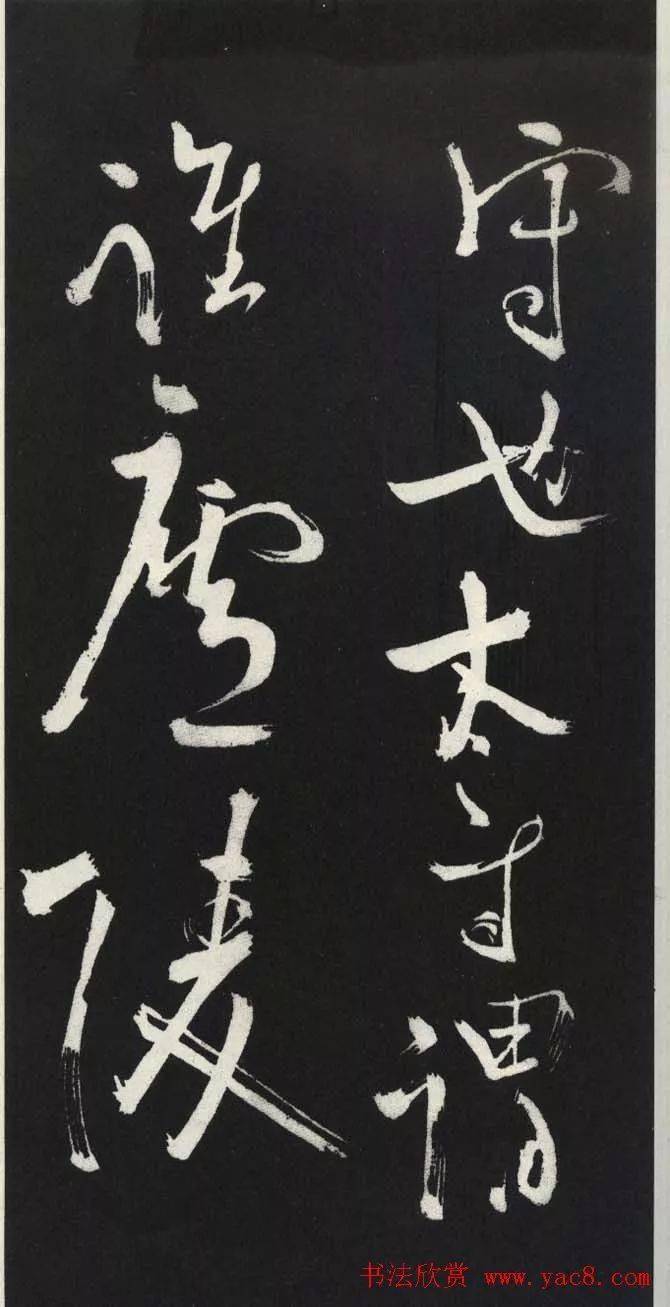 守也太守謂
誰廬陵
书法欣赏 www.yac8.com